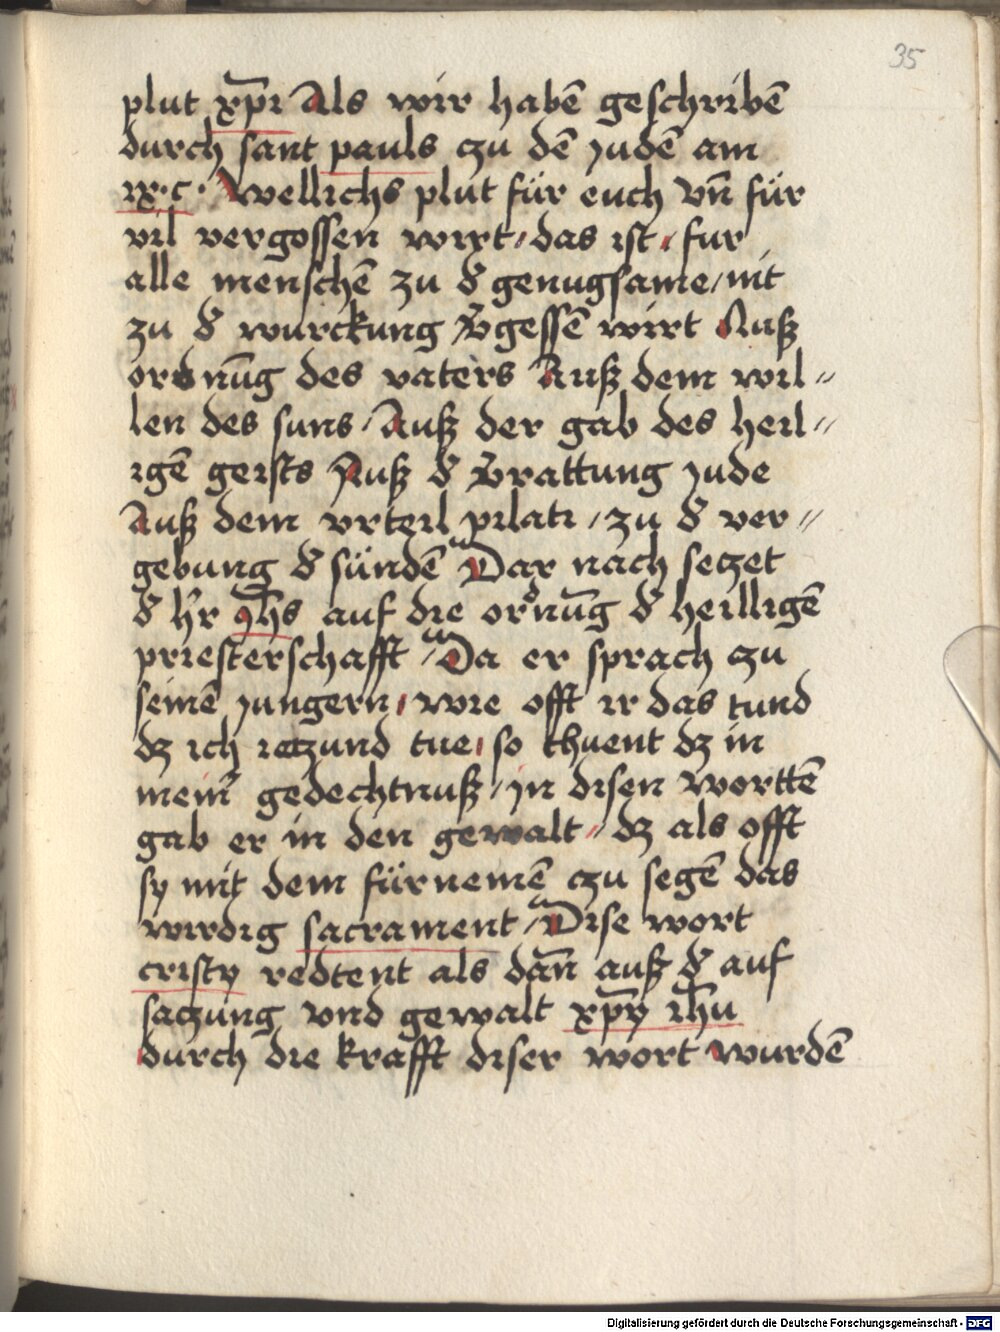 35
plut xp̄i Als wir habē geschribē
durch sant pauls czu dē judē am
ix·c· Wellichs plut für euch vn̄ für
vil vergossen wirt / das ist / fur
alle menschē zu d̄ genugsame / nit
zu d̄ wurckung v̄gessē wirt Auß
ordnūg des vaters Auß dem wil=
len des suns / Auß der gab des heil=
igē geists Auß d̄ v̄rattung jude
Auß dem vrteil pilati / zu d̄ ver=
gebung d̄ sündē Dar nach seczet
d̄ h̄r jh̄s auf die ordnūg d̄ heilligē
priesterschafft / Da er sprach czu
seinē jungern / wie offt ir das tund
dz ich ieczund tue / so thuent dz in
mein̄ gedechtnuß / jn disen worttē
gab er in den gewalt / dz als offt
sy mit dem fürnemē czu segē das
wirdig sacrament / Dise wort
cristy redtent als dān auß d̄ auf
saczung vnd gewalt xp̄y ih̄u
durch die krafft diser wort wurdē
Digitalisierung gefördert durch die Deutsche Forschungsgemeinschaft - DFG